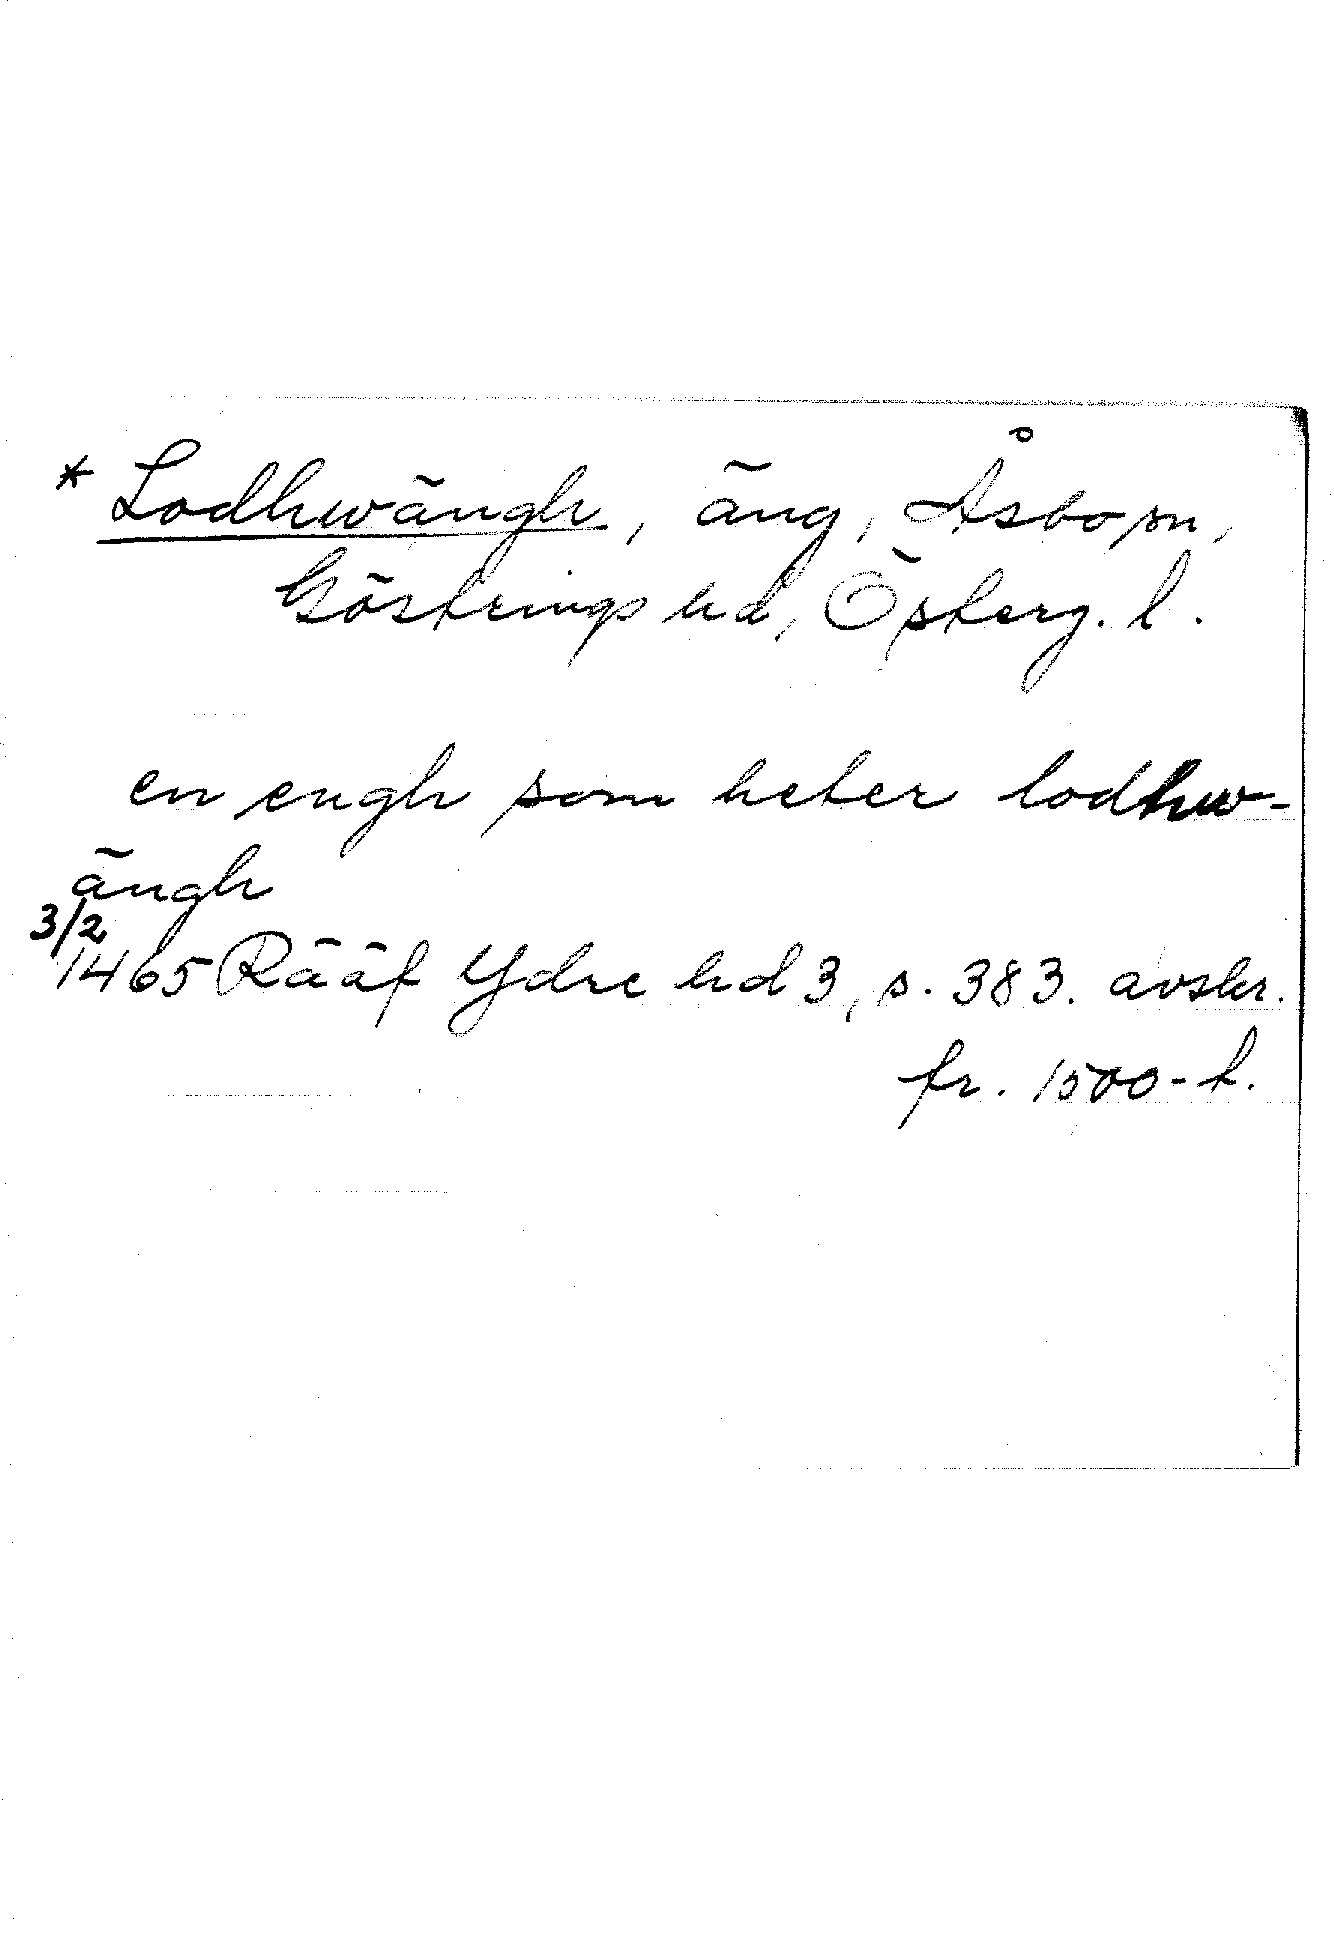 * Lodhwängh, äng, Åsbo sn,
Göstrings hd, Österg. l.
en engh som heter lodhw-
ängh
3/2
1465 Rääf Ydre hd 3, s. 383. avskr.
fr. 1500-t.